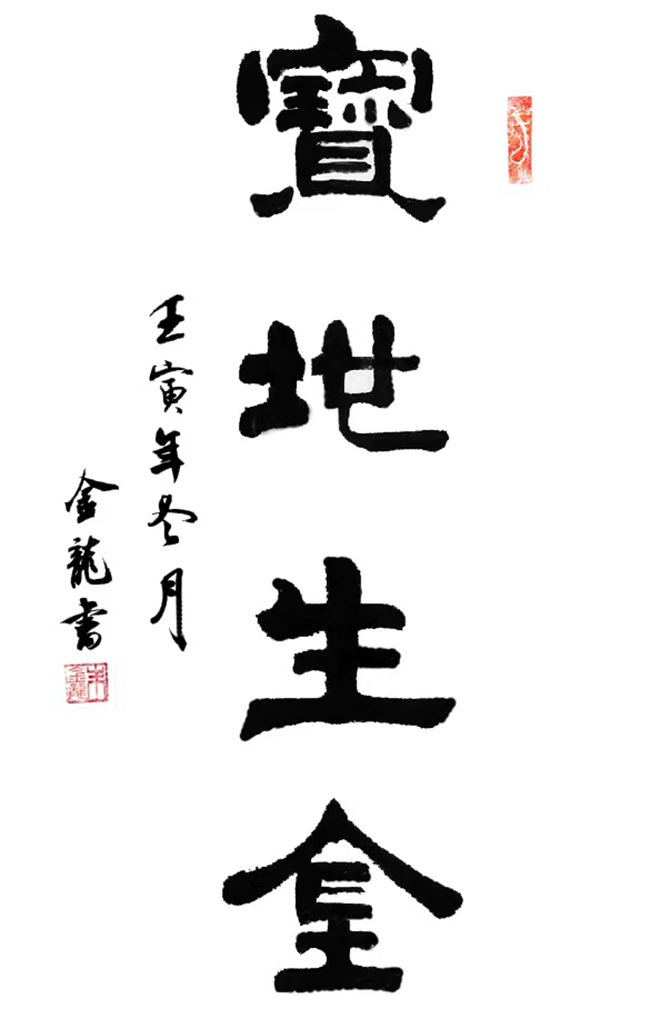 寶地生金
壬寅年冬月
金龍書